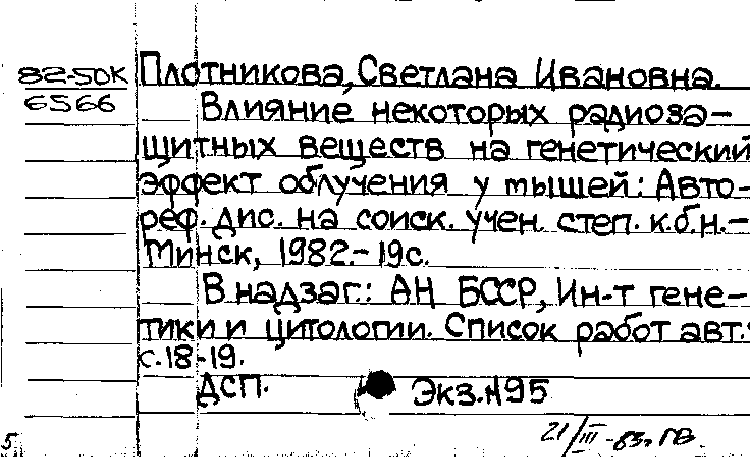 82-5DK
6566
Плотникова, Светлана Ивановна.
Влияние некоторых радиоза-
щитных веществ на генетический
эффект облучения у мышей: Авто-
реф. дис. на соиск. учен. степ. к.б.н.-
Минск, 1982.-19с.
В надзаг.: АН БССР, Ин-т гене-
тики и цитологии. Список работ авт.:
с.18-19.
ДСП. Экз.№95
21/III-83г. ГВ.
5